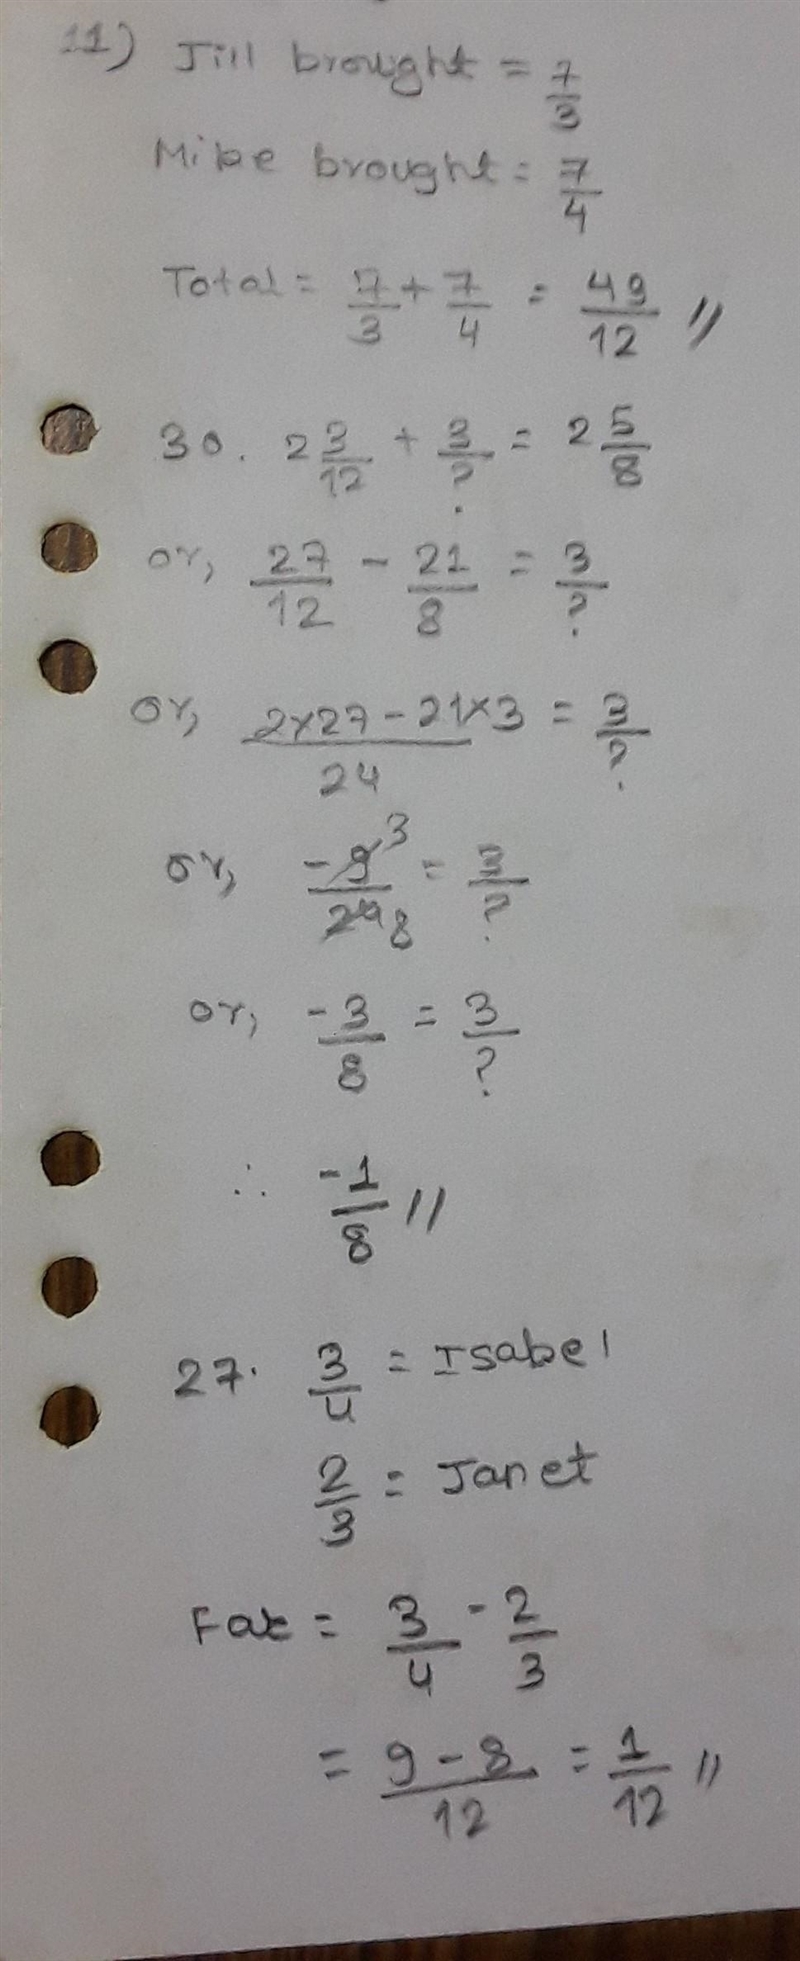 11) Jill brought = 7/3
Mike brought = 7/4
Total = 7/3 + 7/4 = 49/12 //
30. 2 3/12 + 3/? = 2 5/8
or, 27/12 - 21/8 = 3/?
or, 2×27 - 21×3/24 = 3/?
or, -9 3/24 8 = 3/?
or, -3/8 = 3/?
∴ -1/8 //
27. 3/4 = Isabel
2/3 = Janet
Fat = 3/4 - 2/3
= 9-8/12 = 1/12 //